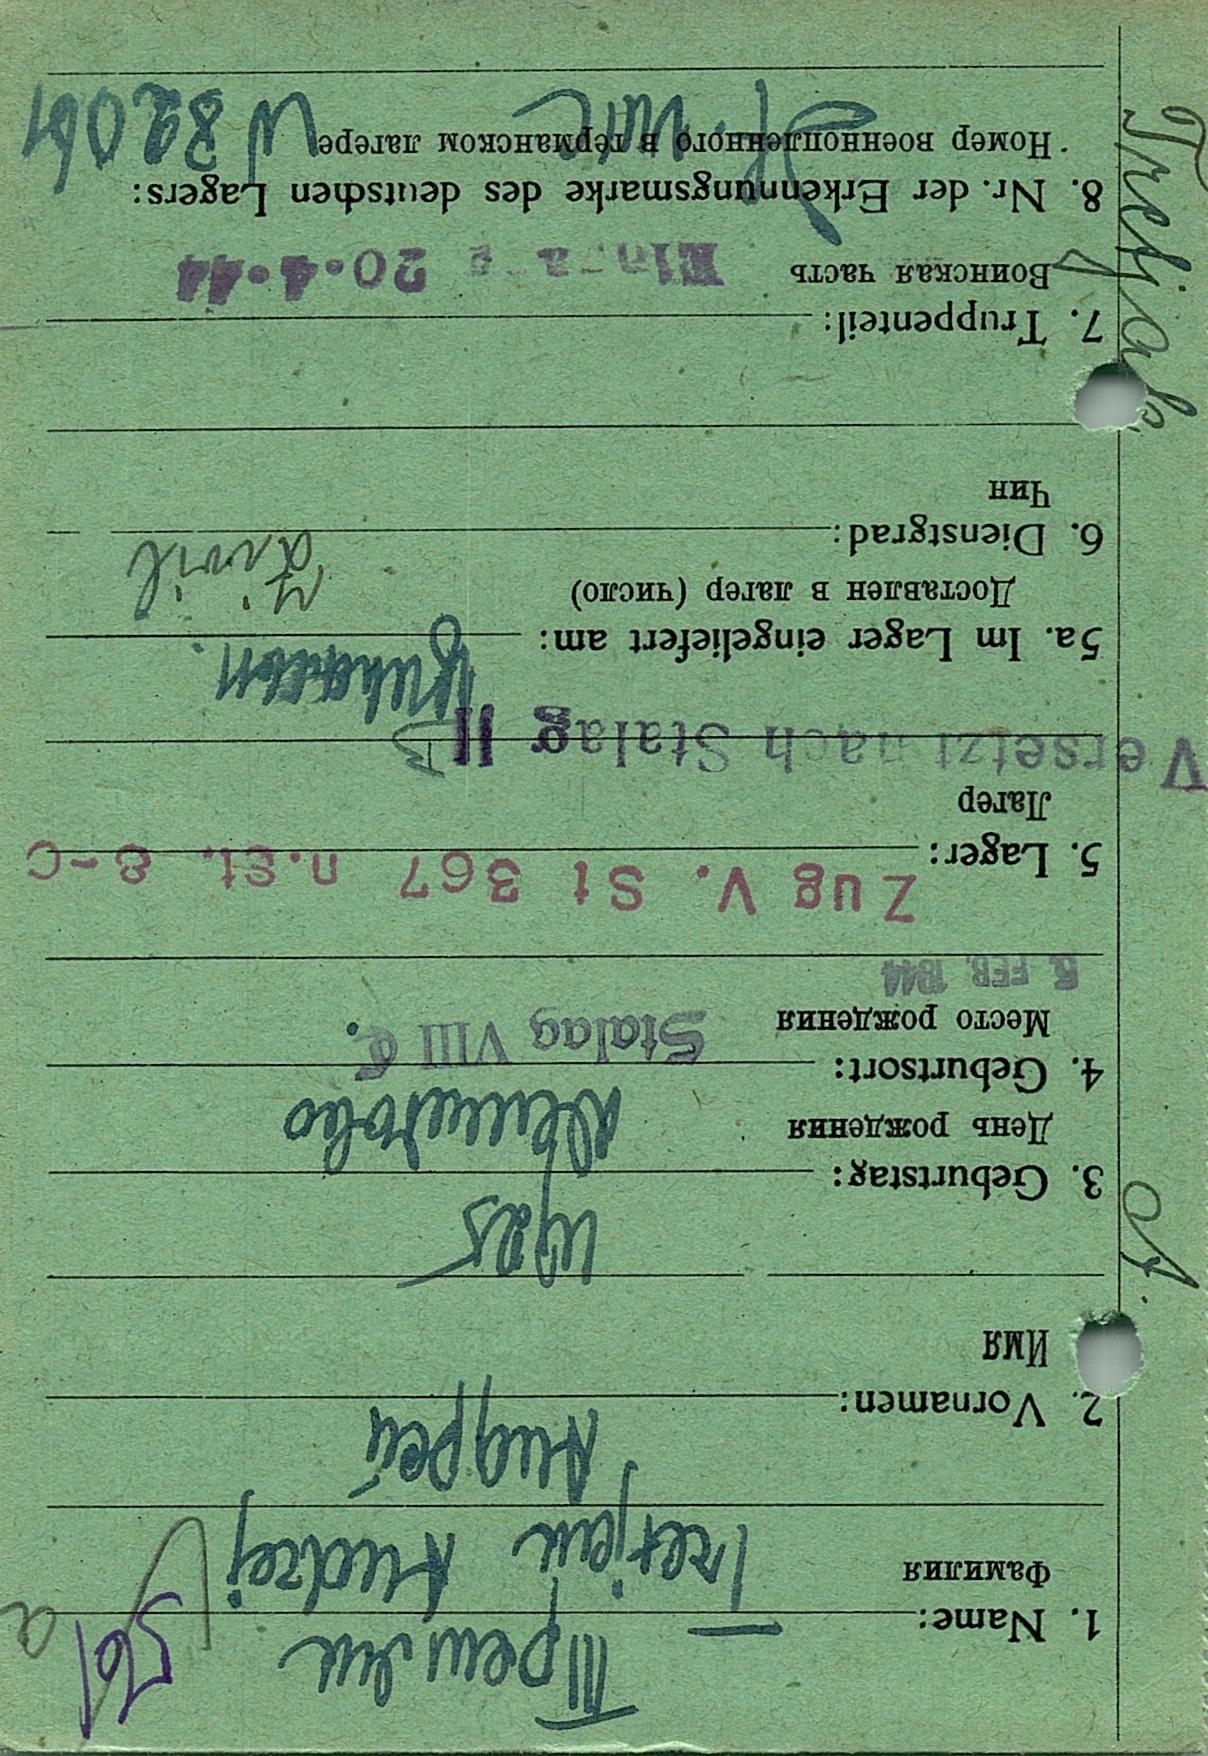 Tretjak A.
561 a
Третяк
1. Name:
Фамилия
Andrej
Андрей
2. Vornamen:
Имя
3. Geburtstag:
День рождения
4. Geburtsort:
Место рождения
Stalag VIII C.
5. FEB. 1944
Zug V. St 367 n. St. 8-C
5. Lager:
Лагерь
Versetzt nach Stalag II B
5a. Im Lager eingeliefert am:
Доставлен в лагерь (число)
Zivil
6. Dienstgrad:
Чин
7. Truppenteil:
Воинская часть
20.4.44
8. Nr. der Erkennungsmarke des deutschen Lagers:
Номер военнопленного в германском лагере